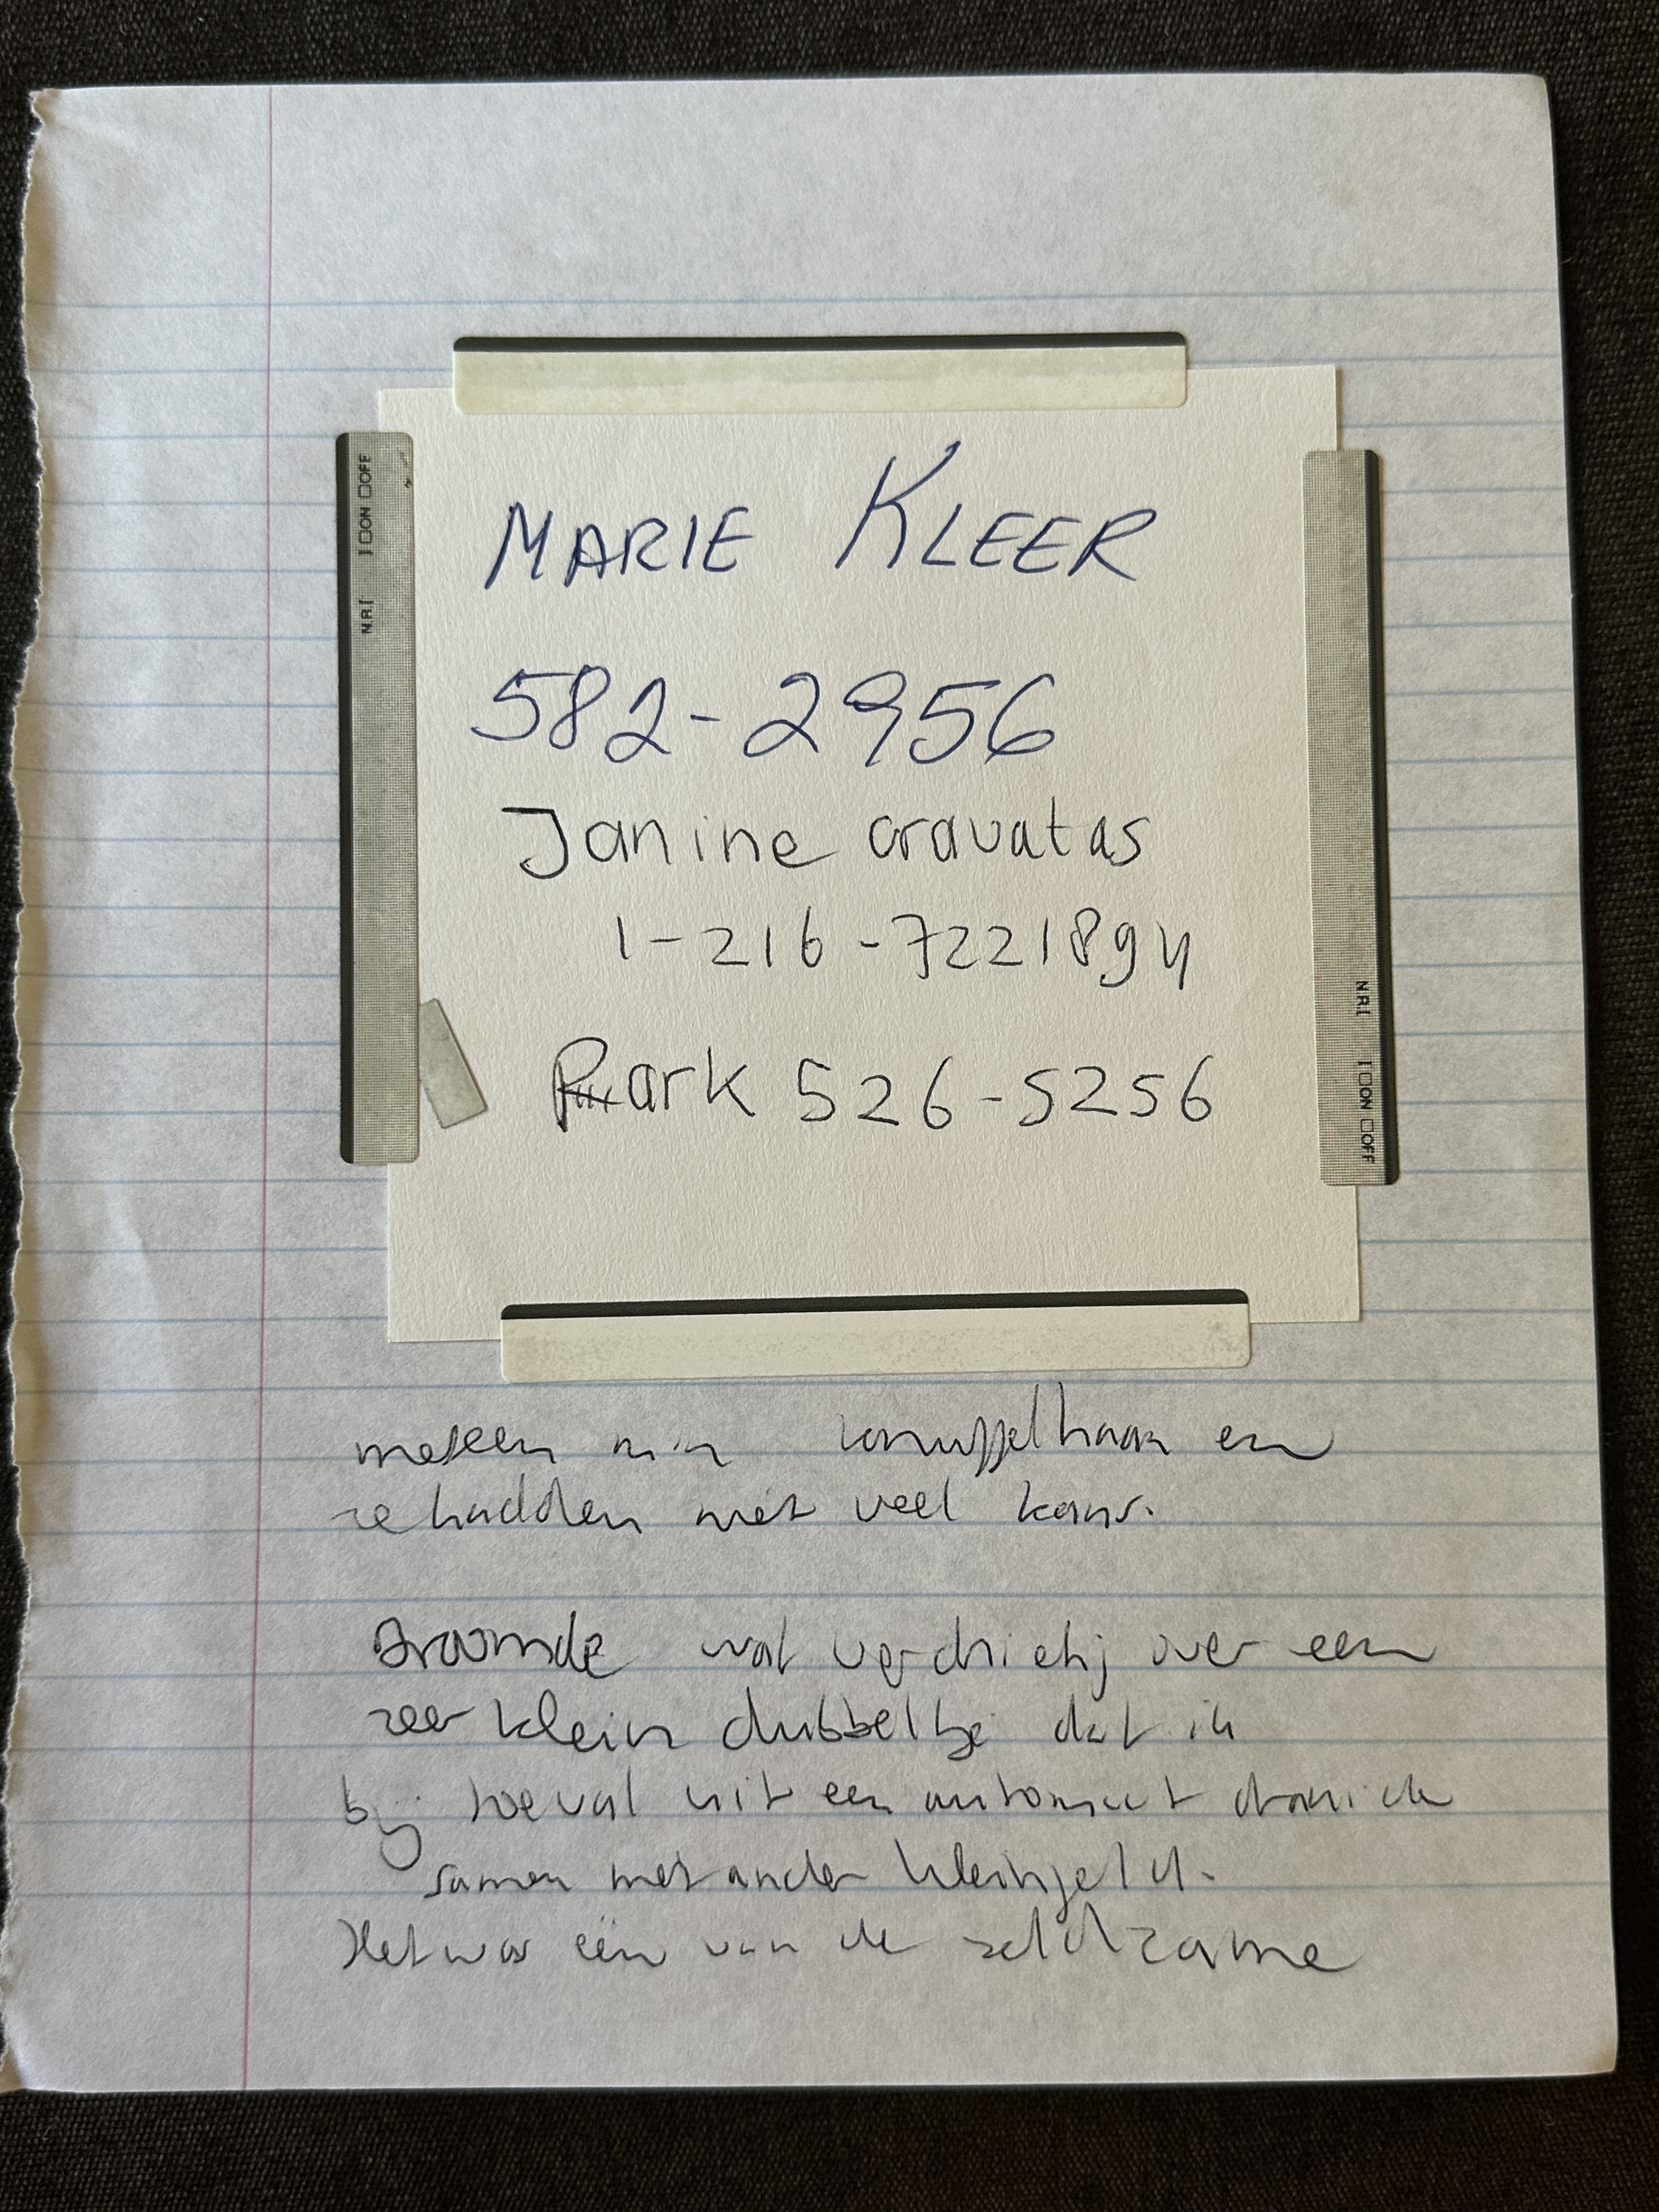 MARIE KLEER
582-2956
Janine cravatas
1-216-7221894
Park 526-5256
N.A.I I □ON □OFF
N.A.I I □ON □OFF
meteen mijn knuffelhaan en
ze hadden niet veel kans.
Droomde wat verdrietig over een
zeer klein dubbeltje dat ik
bij toeval uit een automaat
samen met ander kleingeld.
Het was één van de seldzame